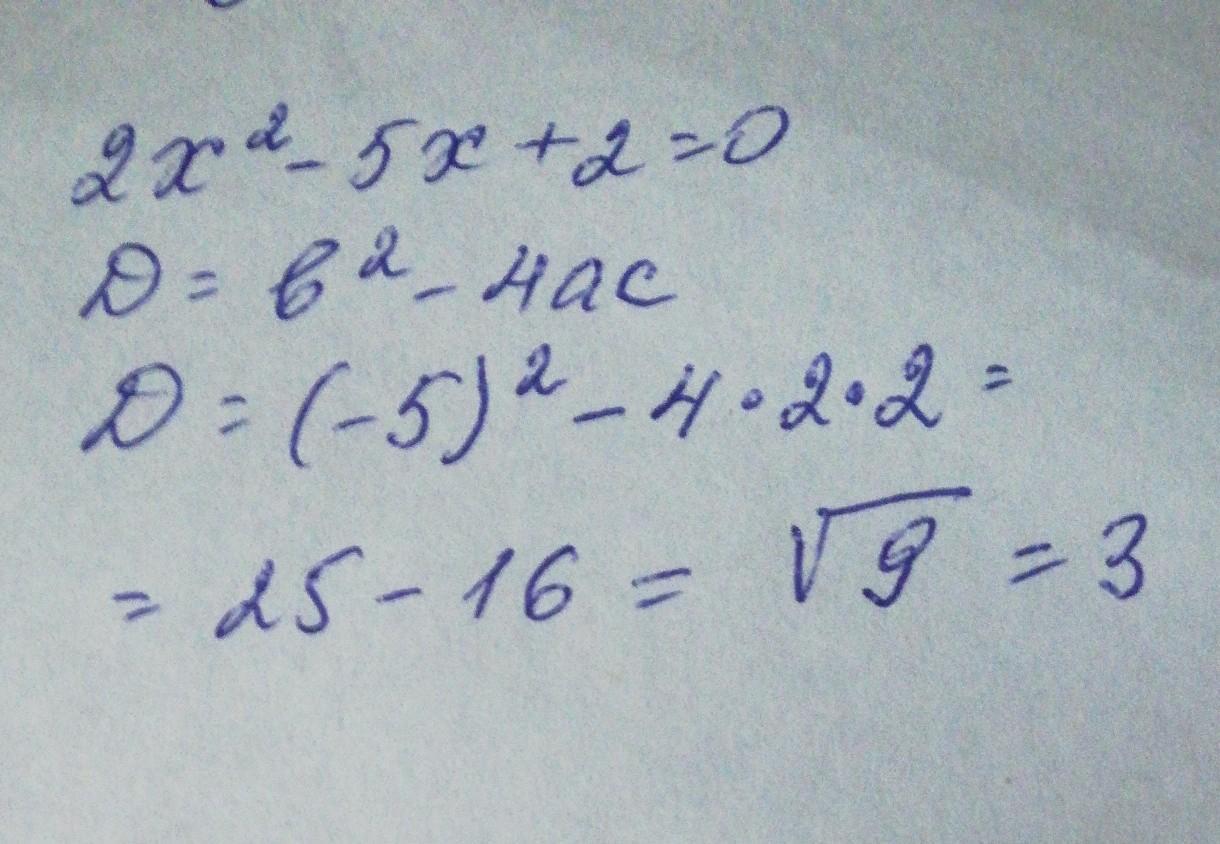 2x² - 5x + 2 = 0
D = b² - 4ac
D = (-5)² - 4 · 2 · 2 =
= 25 - 16 = √9 = 3